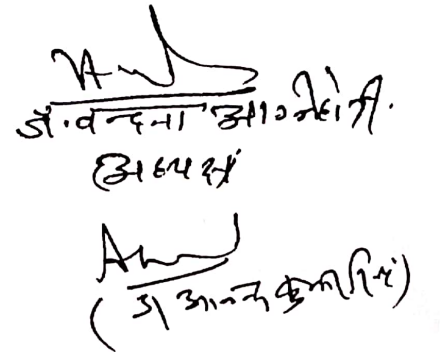 डॉ. वन्दना अग्निहोत्री.
अध्यक्ष
(डॉ आनन्द कुमार सिंह)